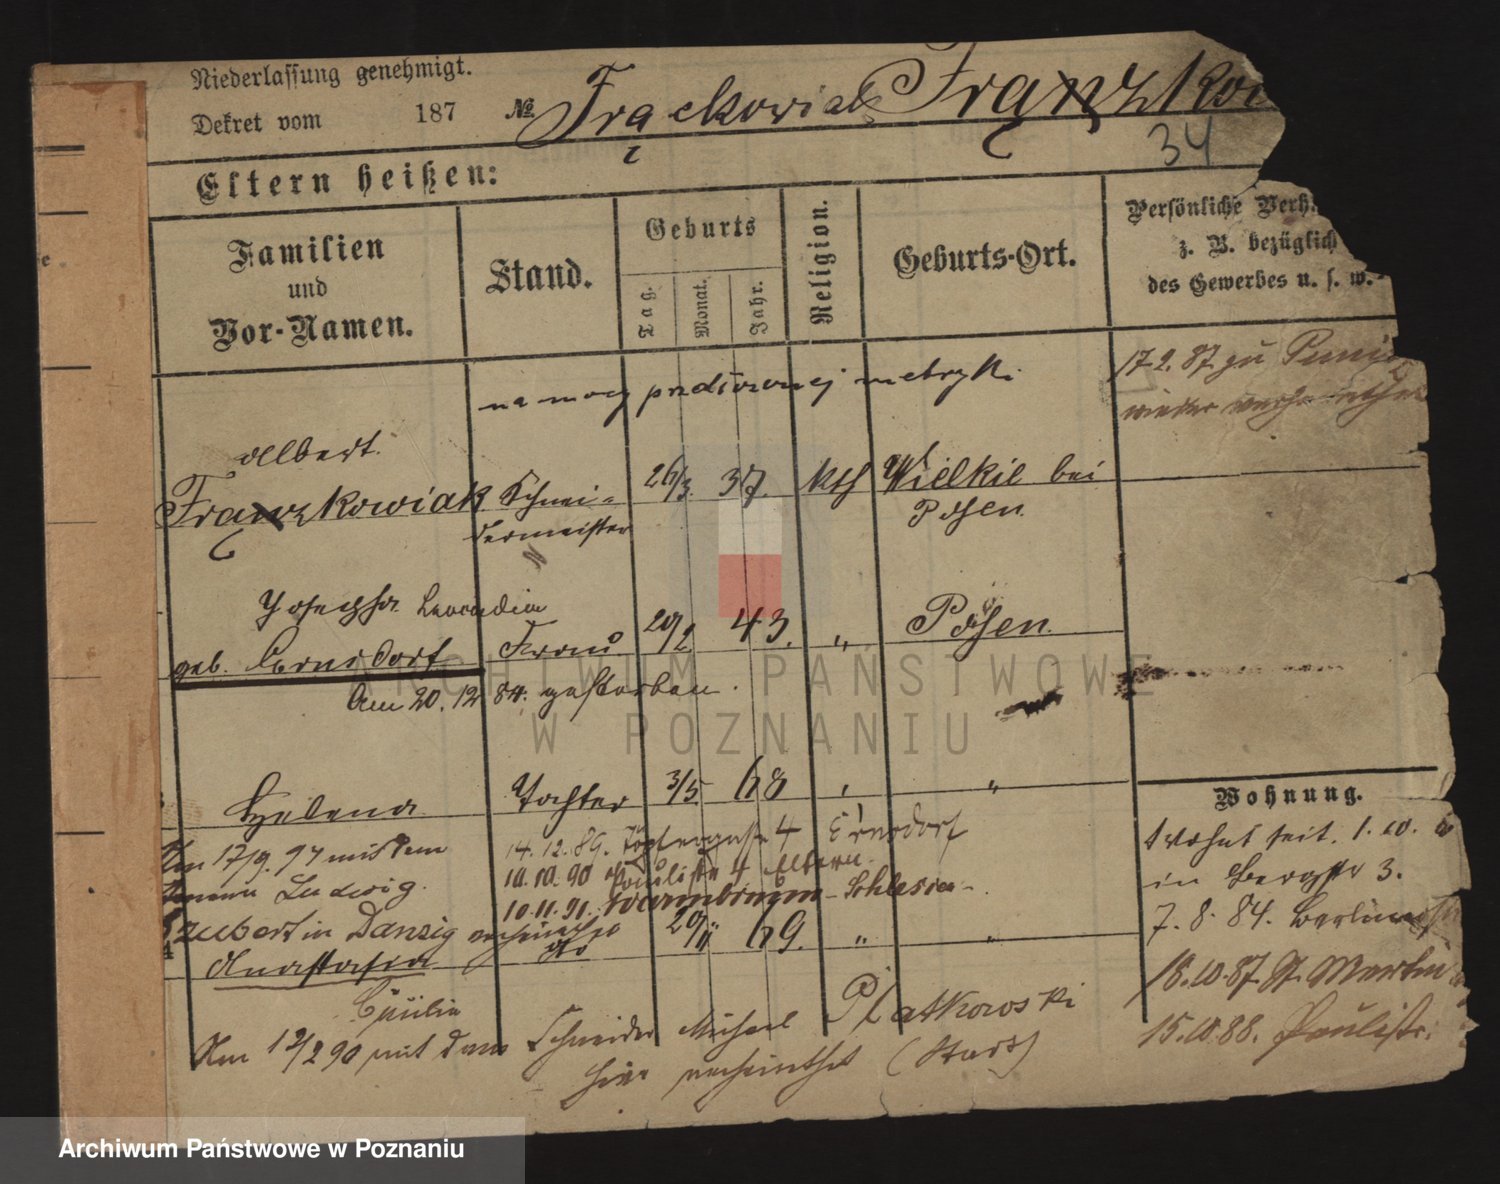 Niederlassung genehmigt.
Dekret vom 187 № Frąckowiak Franzkow
34
Eltern heißen:
Familien
und
Vor-Namen.
Stand.
Geburts
Tag.
Monat.
Jahr.
Religion.
Geburts-Ort.
Persönliche Verh
z. B. bezüglich
des Gewerbes u. s. w.
na mocy przedłożonej metryki
17.2.87 zu
wieder
Albert
Franzkowiak Schnei- 26/3. 37. Kth Wielkie bei
dermeister Posen
Josepha Leocadia
geb. Ernsdorf Frau 20/2 43. „ Posen.
Am 20.12 84. gestorben.
Helena Tochter 3/5 68 „ „
Am 17/9. 94 mit dem
Ludwig
Szubert in Danzig
14.12.89. 4 Ernsdorf
10.10.90 Paulistr 4 Eltern
10.11.91. - Schlesien -
Anastasia dto 20/11 69. „ „
Cäcilia
Am 12/2 90 mit dem Schneider Michael Platkowski
hier verheirathet
Wohnung.
Wohnt seit. 1.10.
in Bergstr 3.
7.8.84. Berliner
18.10.87. St. Martin
15.10.88. Paulistr.
ARCHIWUM PAŃSTWOWE
W POZNANIU
Archiwum Państwowe w Poznaniu